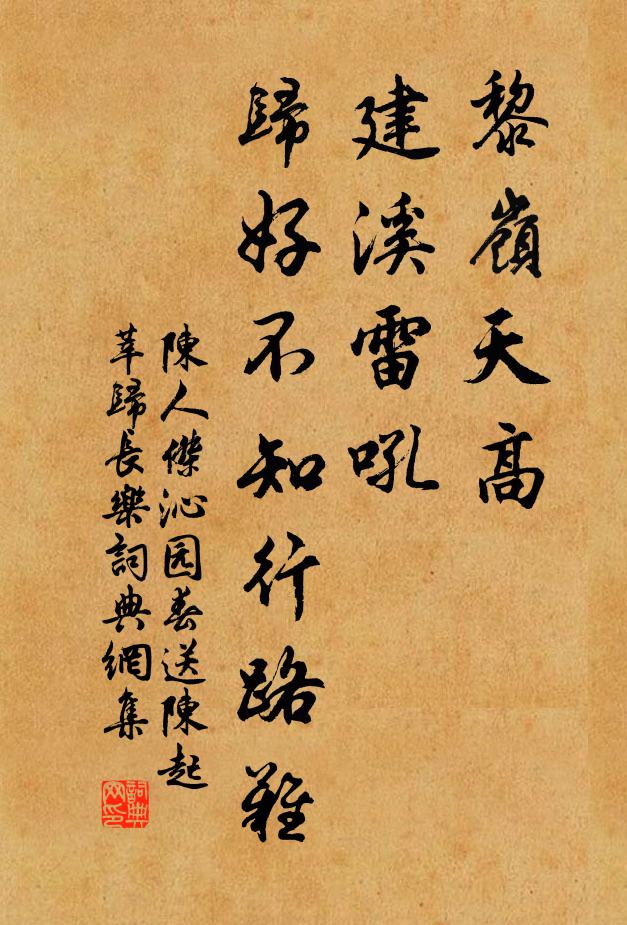 黎嶺天高
建溪雷吼
歸好不知行路難
陳人傑沁园春送陳起
莘歸長樂詞典網集
詞典
网印